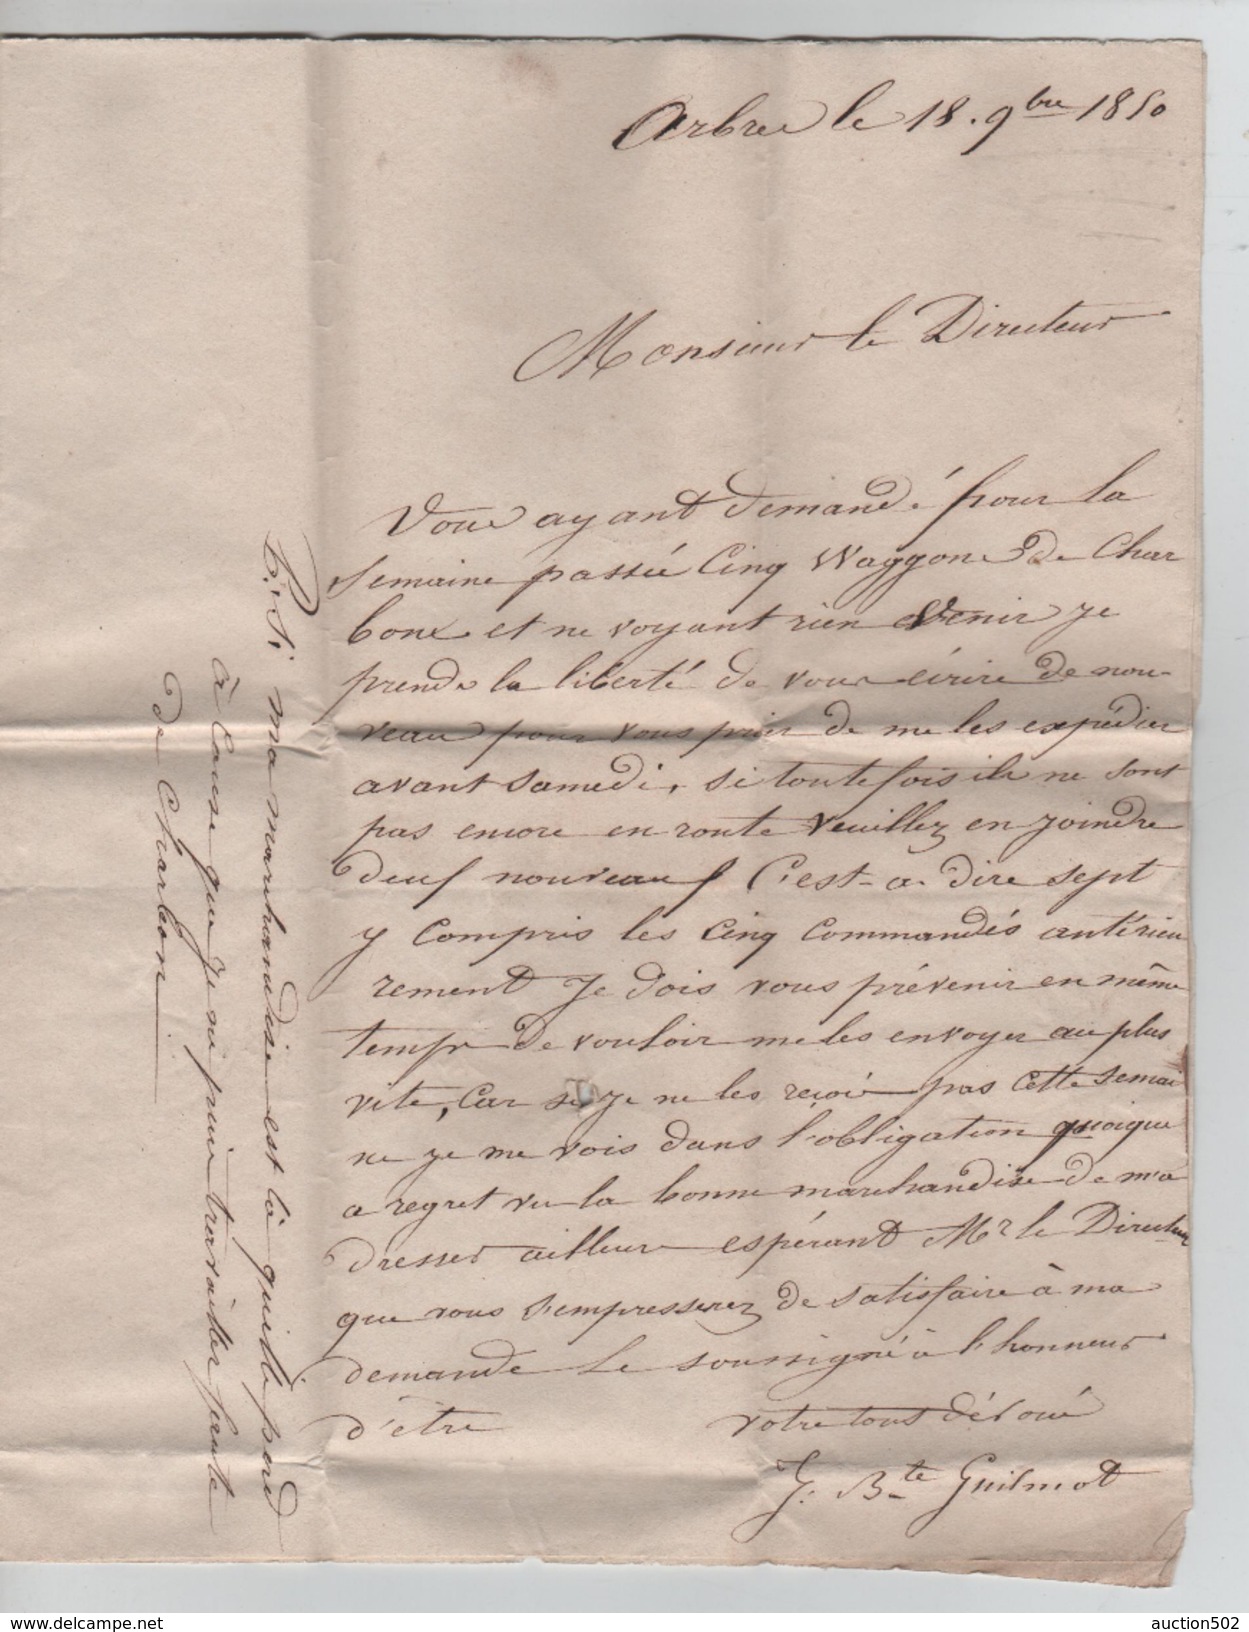 Arbre le 18. 9bre 1850
Monsieur le Directeur
Vous ayant demandé pour la
semaine passée Cinq Waggons de Char
bons et ne voyant rien venir je
prends la liberté de vous écrire de nou-
veau pour vous prier de me les expédier
avant Samedi, si toutefois ils ne sont
pas encore en route veuillez en joindre
deux nouveaux C'est-a-dire sept
y compris les Cinq commandés antérieu
rement Je dois vous prévenir en même
temps de vouloir me les envoyer au plus
vite, Car si je ne les reçoit pas Cette Semai
ne je me vois dans l'obligation quoique
a regret vu la bonne marchandise de m'a
dresser ailleurs espérant Mr le Directeur
que vous s'empresserez de satisfaire à ma
demande Le soussigné à l'honneur
d'être votre tous dévoué
J: Bte Guilmot
P.S. ma marchandise est là qui se perd
à Cause que je ne puis travailler faute
de Charbon
delcampe.net
auction502